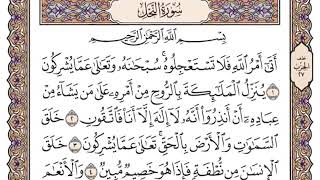 سُورَةُ النَّحْلِ
بِسْمِ اللَّهِ الرَّحْمَٰنِ الرَّحِيمِ
أَتَىٰٓ أَمْرُ ٱللَّهِ فَلَا تَسْتَعْجِلُوهُ ۚ سُبْحَٰنَهُۥ وَتَعَٰلَىٰ عَمَّا يُشْرِكُونَ
١ يُنَزِّلُ ٱلْمَلَٰٓئِكَةَ بِٱلرُّوحِ مِنْ أَمْرِهِۦ عَلَىٰ مَن يَشَآءُ مِنْ
عِبَادِهِۦٓ أَنْ أَنذِرُوٓا۟ أَنَّهُۥ لَآ إِلَٰهَ إِلَّآ أَنَا۠ فَٱتَّقُونِ ٢ خَلَقَ
ٱلسَّمَٰوَٰتِ وَٱلْأَرْضَ بِٱلْحَقِّ ۚ تَعَٰلَىٰ عَمَّا يُشْرِكُونَ ٣ خَلَقَ
ٱلْإِنسَٰنَ مِن نُّطْفَةٍ فَإِذَا هُوَ خَصِيمٌ مُّبِينٌ ٤ وَٱلْأَنْعَٰمَ
الحزب
٢٧